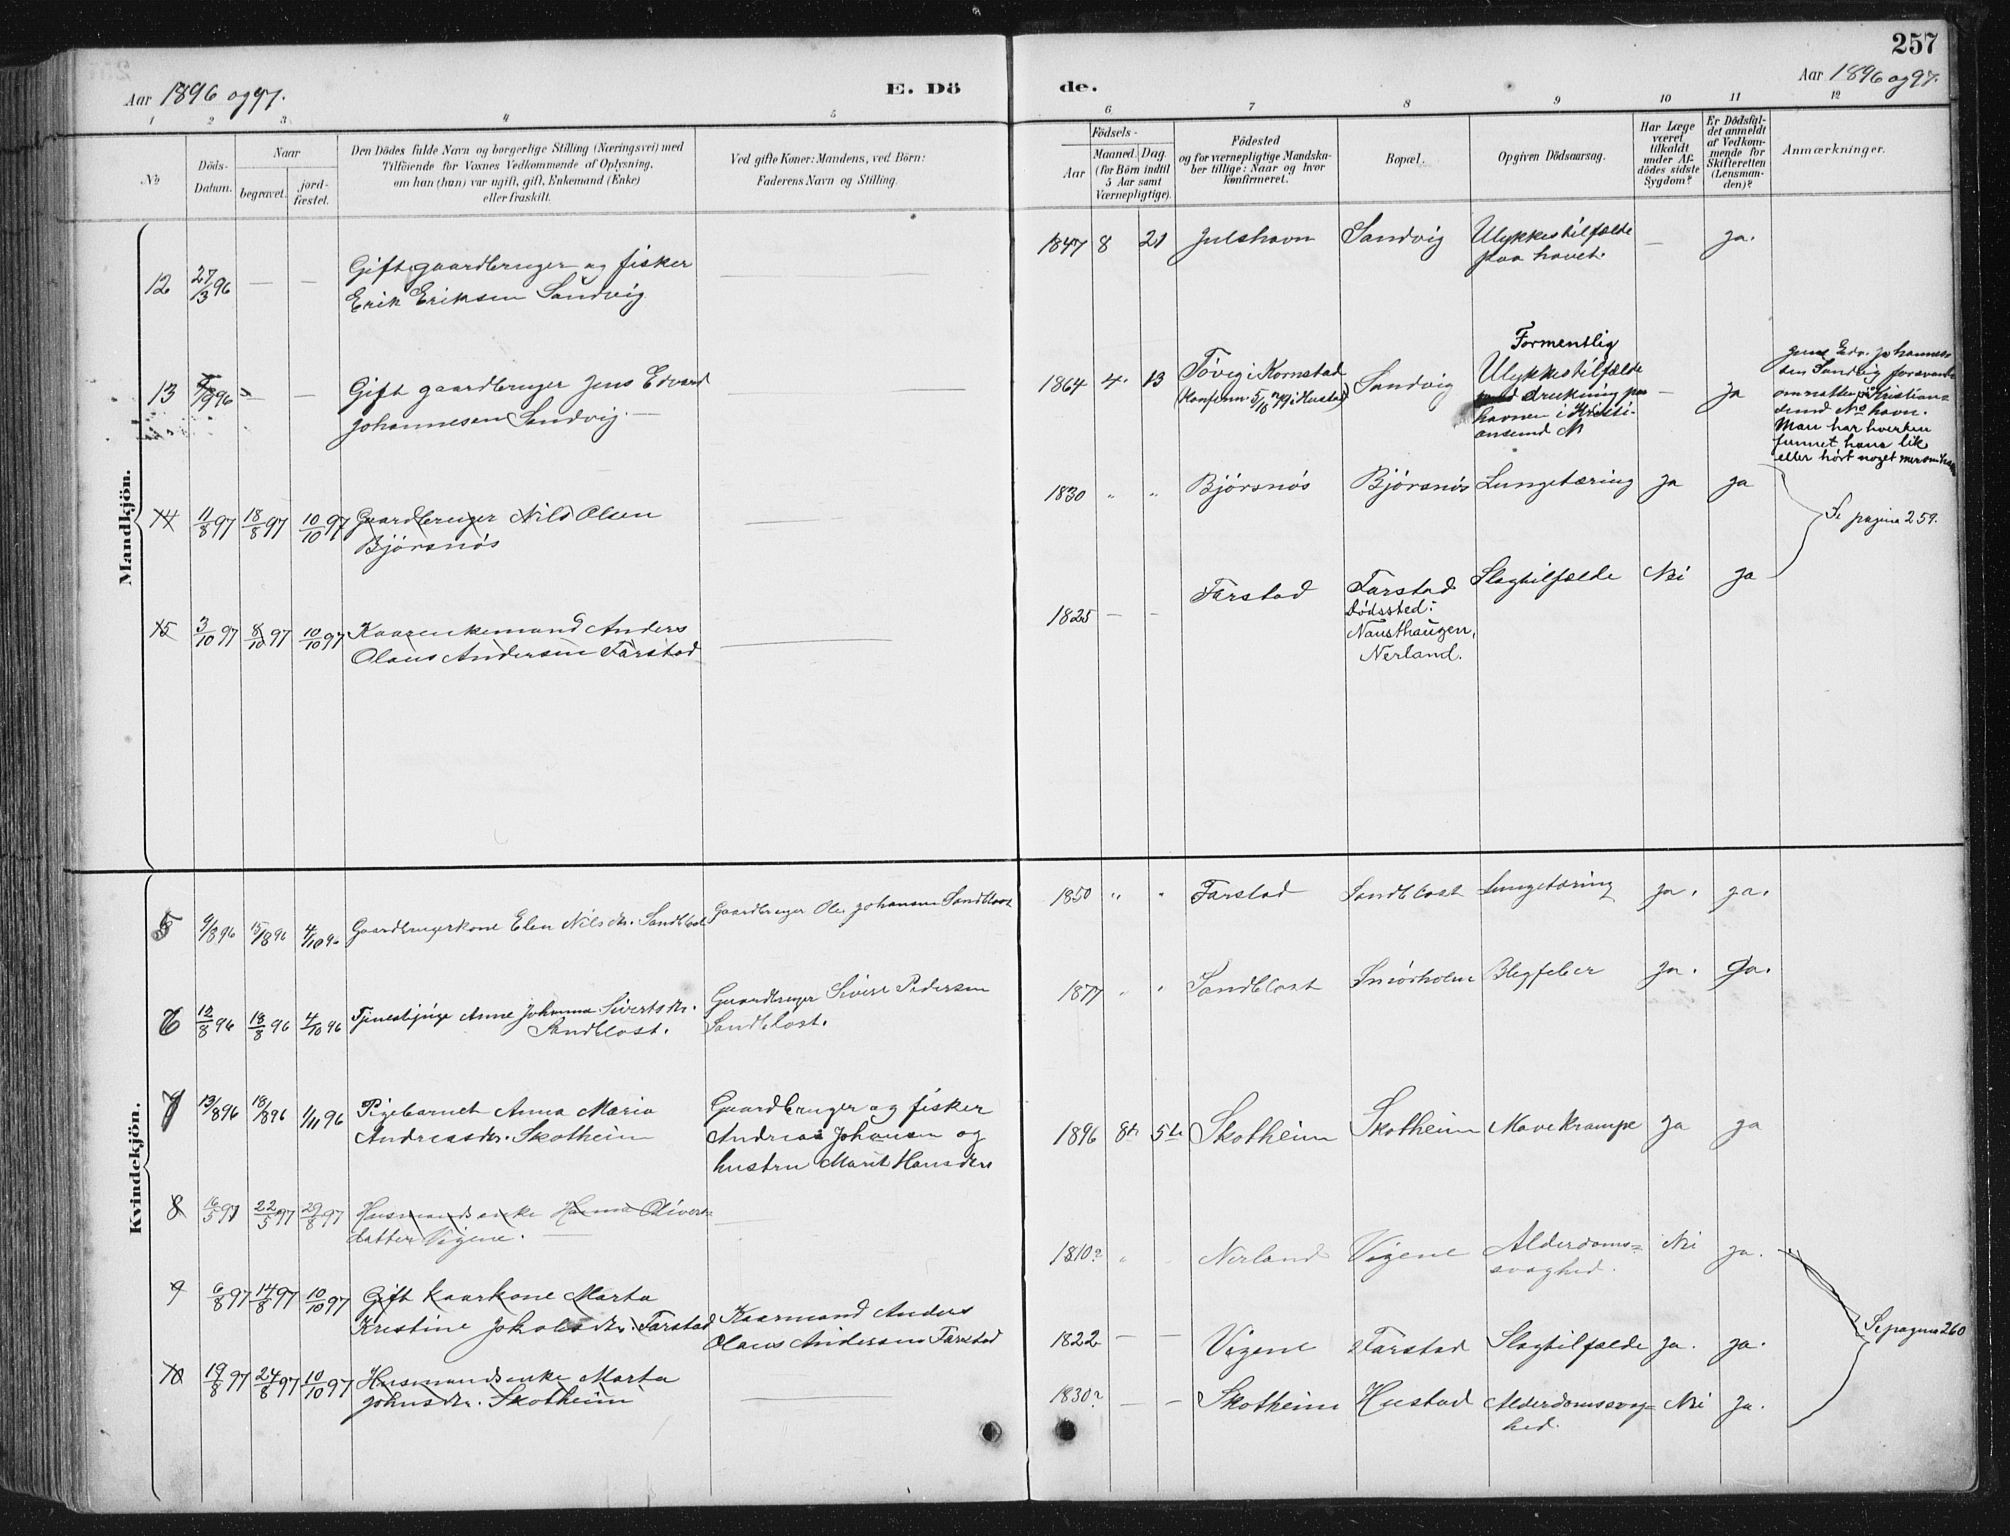 257
Aar 1896 og 97.
E. Dö
de.
Aar 1896 og 97.
1 2 3 4 5 6 7 8 9 10 11 12
No
Döds-
Datum.
Naar
begravet.
jord-
fæstet.
Den Dödes fulde Navn og borgerlige Stilling (Næringsvei) med
Tilföiende for Voxnes Vedkommende af Oplysning,
om han (hun) var ugift, gift, Enkemand (Enke)
eller fraskilt.
Ved gifte Koner: Mandens, ved Börn:
Faderens Navn og Stilling.
Födsels-
Aar
Maaned. Dag.
(for Börn indtil
5 Aar samt
Værnepligtige).
Födested
og for værnepligtige Mandska-
ber tillige: Naar og hvor
konfirmeret.
Bopæl.
Opgiven Dödsaarsag.
Har Læge
været
tilkaldt
under Af-
dödes sidste
Sygdom?
Er Dödsfal-
det anmeldt
af Vedkom-
mende for
Skifteretten
(Lensman-
den)?
Anmærkninger.
Mandkjön.
12 27/3 96 — — Gift gaardbruger og fisker
Erik Eriksen Sandvig
1847 8 21 Julshavn Sandvig Ulykkestilfælde
paa havet. — ja.
13 /9 96 — — Gift gaardbruger Jens Edvard
Johannesen Sandvig. —
1864 4. 13 Tøvig i Kornstad
(Konfirm. 5/10 79 i Hustad)
Sandvig
Formentlig
Ulykkestilfælde
drukning paa
havnen i Kristi-
ansund N
— ja
Jens Edv. Johannes-
sen Sandvig forsvandt
om natten paa Kristian-
sund N havn.
Man har hverken
funnet hans lik
eller hört noget mer om ham
14 11/8 97 18/8 97 10/10 97 Gaardbruger Nils Olsen
Bjørsnös
1830 " " Bjørsnös Bjørsnös Lungetæring ja ja
Se pagina 259.
15 3/10 97 8/10 97 10/10 97 Kaarenkemand Anders
Olaus Andersen Farstad
1825 — — Farstad Farstad
Dödssted:
Nausthaugen,
Nerland.
Slagtilfælde Nei ja
Kvindekjön.
5 9/8 96 15/8 96 4/10 96 Gaardbrugerkone Elen Nilsdtr. Sandblost
Gaardbruger Ole Johansen Sandblost
1850 " " Farstad Sandblost Lungetæring ja. ja.
6 12/8 96 18/8 96 4/10 96 Tjenestpige Anne Johanna Sivertsdtr.
Sandblost.
Gaardbruger Sivert Pedersen
Sandblost.
1877 " " Sandblost Smörholm Blegfeber ja. ja.
7 13/8 96 18/8 96 1/11 96 Pigebarnet Anna Maria
Andreasdtr. Skotheim
Gaardbruger og fisker
Andreas Johansen og
hustru Marit Hansdtr
1896 8de 5te Skotheim Skotheim Mavekrampe ja ja
8 16/5 97 22/5 97 29/8 97 Husmandsenke Hanna Olivers-
datter Vigene. —
1810? " Nerland Vigene Alderdoms-
svaghed. Nei ja.
9 6/8 97 14/8 97 10/10 97 Gift Kaarkone Marta
Kristine Jakobsdtr. Farstad
Kaarmand Anders
Olaus Andersen Farstad
1822 — — Vigene Farstad Slagtilfælde ja. ja.
Se pagina 260
10 19/8 97 24/8 97 10/10 97 Husmandsenke Marta
Johnsdtr. Skotheim
1830? — — Skotheim Hustad Alderdomssvag-
hed. Nei ja.